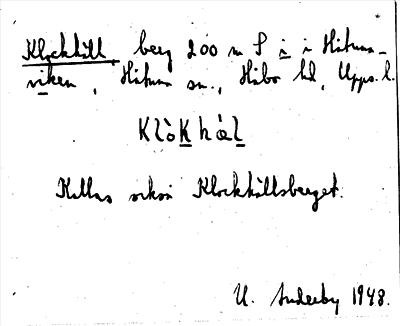 Klockhäll berg 200 m S i i Håtuna-
viken, Håtuna sn., Håbo hd, Upps. l.
Klòkhàl
Kallas också Klockhällsberget.
U. Søderby 1948.